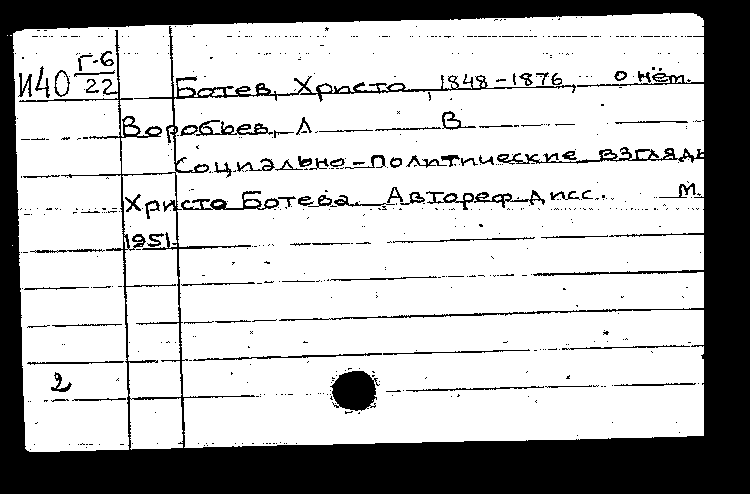 И40 Г-6/22 Ботев, Христо, 1848-1876, о нём.
Воробьев, Л В
Социально-политические взгляды
Христо Ботева. Автореф. дисс. М.
1951.
2